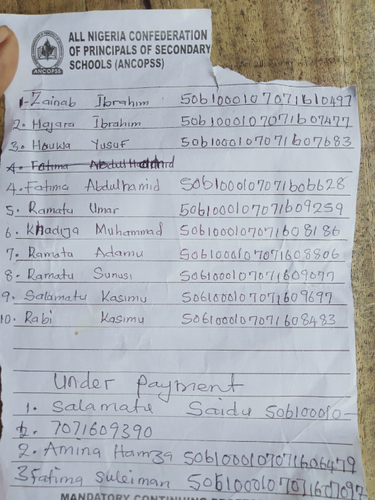 ALL NIGERIA CONFEDERATION
OF PRINCIPALS OF SECONDARY
SCHOOLS (ANCOPSS)
ANCOPSS
1. Zainab Ibrahim 5061000107071610497
2. Hajara Ibrahim 5061000107071607477
3. Hauwa Yusuf 5061000107071607683
4. Fatima Abdulhamid
4. Fatima Abdulhamid 5061000107071606628
5. Ramatu Umar 5061000107071609259
6. Khadija Muhammad 5061000107071608186
7. Ramata Adamu 5061000107071608806
8. Ramatu Sunusi 5061000107071609077
9. Salamatu Kasimu 5061000107071609697
10. Rabi Kasimu 5061000107071608483
Under Payment
1. Salamatu Saidu 50610010-
7071609390
2. Amina Hamza 5061000107071606479
3 Fatima Suleiman 5061000107071607697